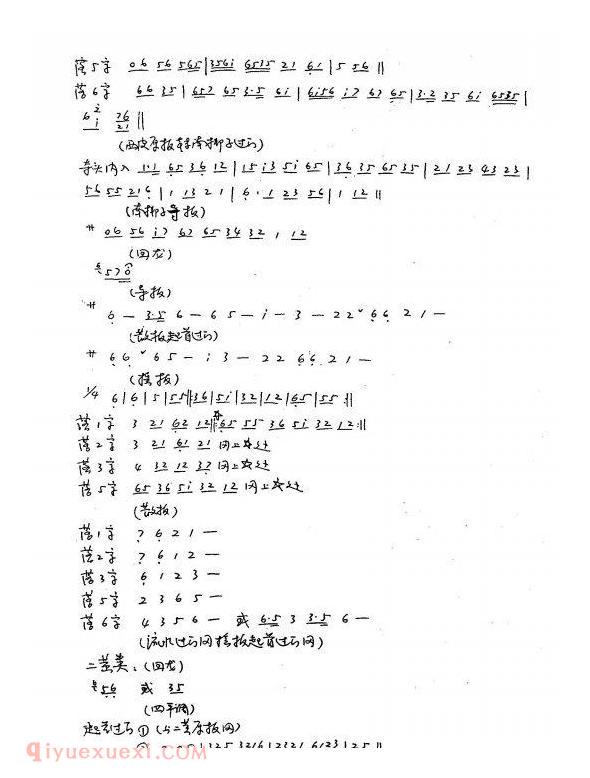 落5字 06 56 565 | 356i 6535 21 61 | 5 56 ‖
落6字 66 35 | 657 65 3·5 6i | 6i56 i7 67 65 | 3·2 35 6i 6535 |
6 2/i 76/21 ‖
(西皮原板转南梆子过门)
夺头内入 1·1 65 36 12 | 15 i3 5i 65 | 36 35 65 35 | 21 23 43 23 |
56 55 216 | 1 13 21 | 6·1 23 56 | 1 12 ‖
(南梆子导板)
サ 06 56 i7 67 65 34 32 1 12
(回龙)
570
(导板)
サ 6 — 3·5 6 — 6 5 — i — 3 — 22 ˇ 66 21 —
(散板起首过门)
サ 66 ˇ 65 — i 3 — 22 66 21 —
(摇板)
1/4 6 | 6 | 5 | 55 ‖ 36 | 5i | 32 | 12 | 65 | 55 :‖
落1字 3 21 62 12 ‖: 65 55 36 5i 32 12 :‖
落2字 3 21 61 21 同上
落3字 4 32 12 37 同上
落5字 65 36 5i 32 12 同上
(散板)
落1字 7 6 2 1 —
落2字 7 6 1 2 —
落3字 6 1 2 3 —
落5字 2 3 6 5 —
落6字 4 3 5 6 — 或 6·5 3 3·5 6 —
(流水过门同摇板起首过门同)
二黄类: (回龙)
56 或 35
(四平调)
起首过门 ① (与二黄原板同)
qiyuexuexi.com